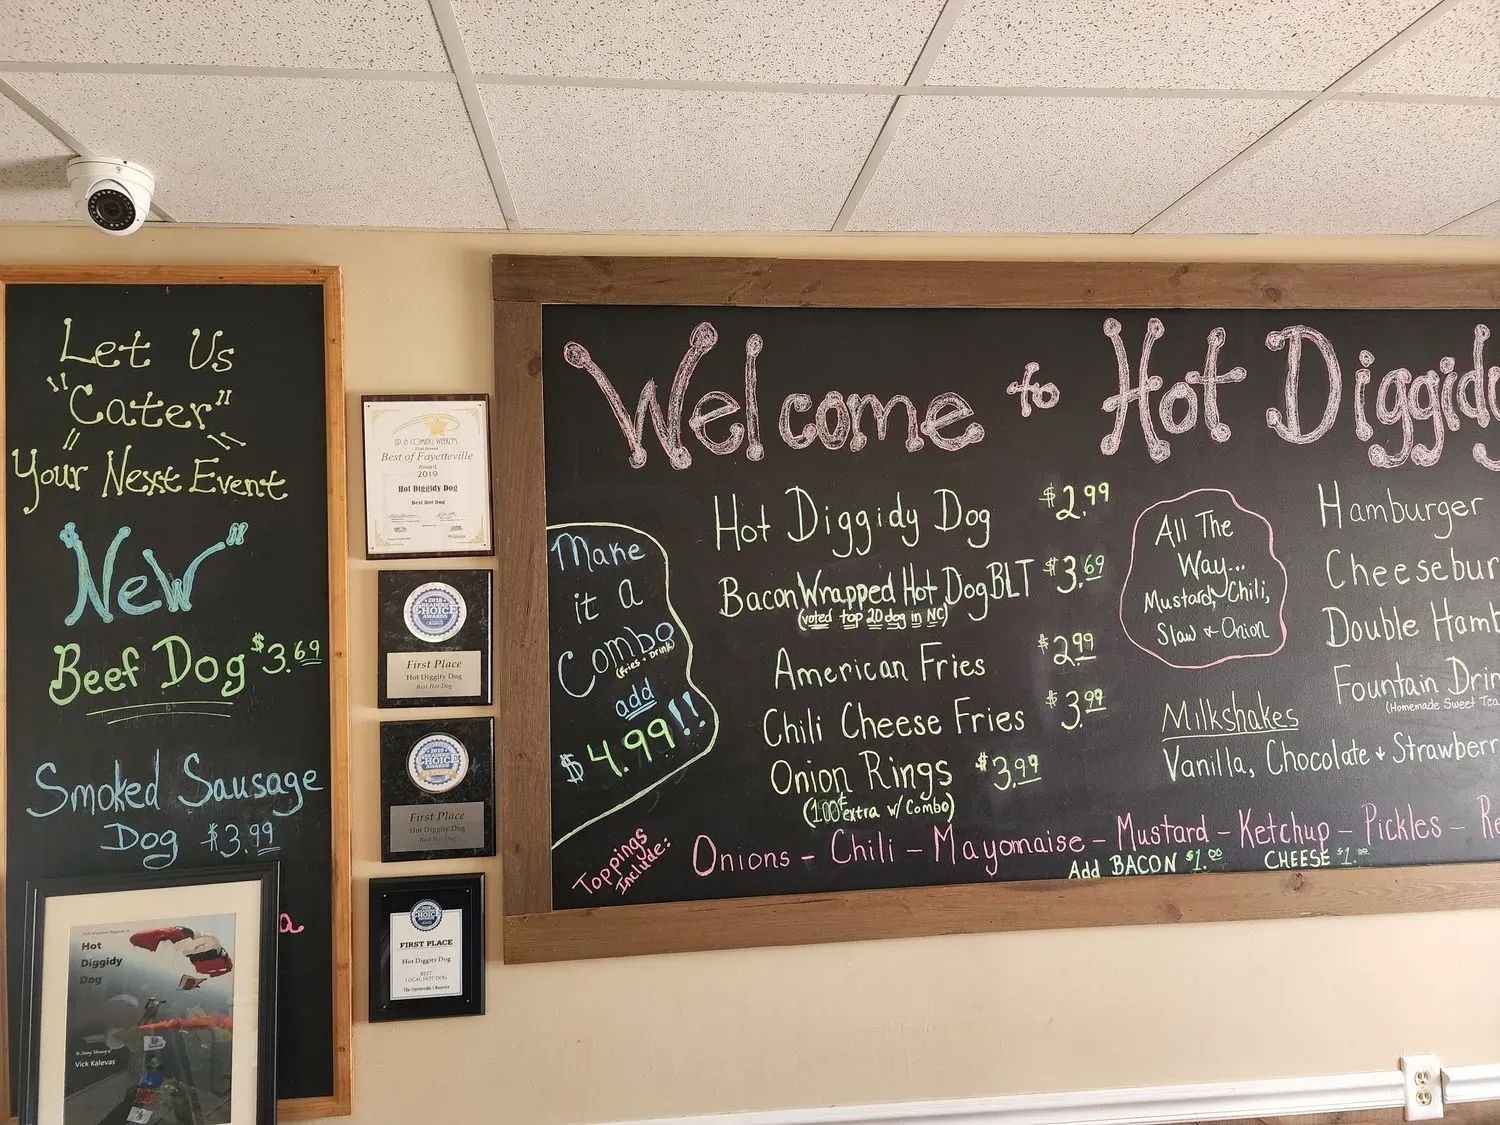 Let Us
"Cater"
Your Next Event
"New"
Beef Dog $3.69
Smoked Sausage
Dog $3.99
a
Hot
Diggidy
Dog
Vick Kalevas
UP & COMING WEEKLY'S
Best of Fayetteville
Award
2019
Hot Diggidy Dog
Best Hot Dog
2018
READERS'
CHOICE
AWARDS
First Place
Hot Diggity Dog
Best Hot Dog
2019
READERS'
CHOICE
AWARDS
First Place
Hot Diggity Dog
Best Hot Dog
CHOICE
FIRST PLACE
Hot Diggity Dog
BEST
LOCAL HOT DOG
The Fayetteville Observer
Welcome to Hot Diggidy
Make
it a
Combo
(fries + Drink)
add
$4.99!!
Hot Diggidy Dog $2.99
Bacon Wrapped Hot Dog BLT $3.69
(voted top 20 dog in NC)
American Fries $2.99
Chili Cheese Fries $3.99
Onion Rings $3.99
(1.00 extra w/ Combo)
All The
Way...
Mustard, Chili,
Slaw + Onion
Hamburger
Cheesebur
Double Hamb
Fountain Drin
(Homemade Sweet Tea
Milkshakes
Vanilla, Chocolate + Strawberr
Toppings
Include:
Onions - Chili - Mayonnaise - Mustard - Ketchup - Pickles - Re
Add BACON $1.00 CHEESE $1.00